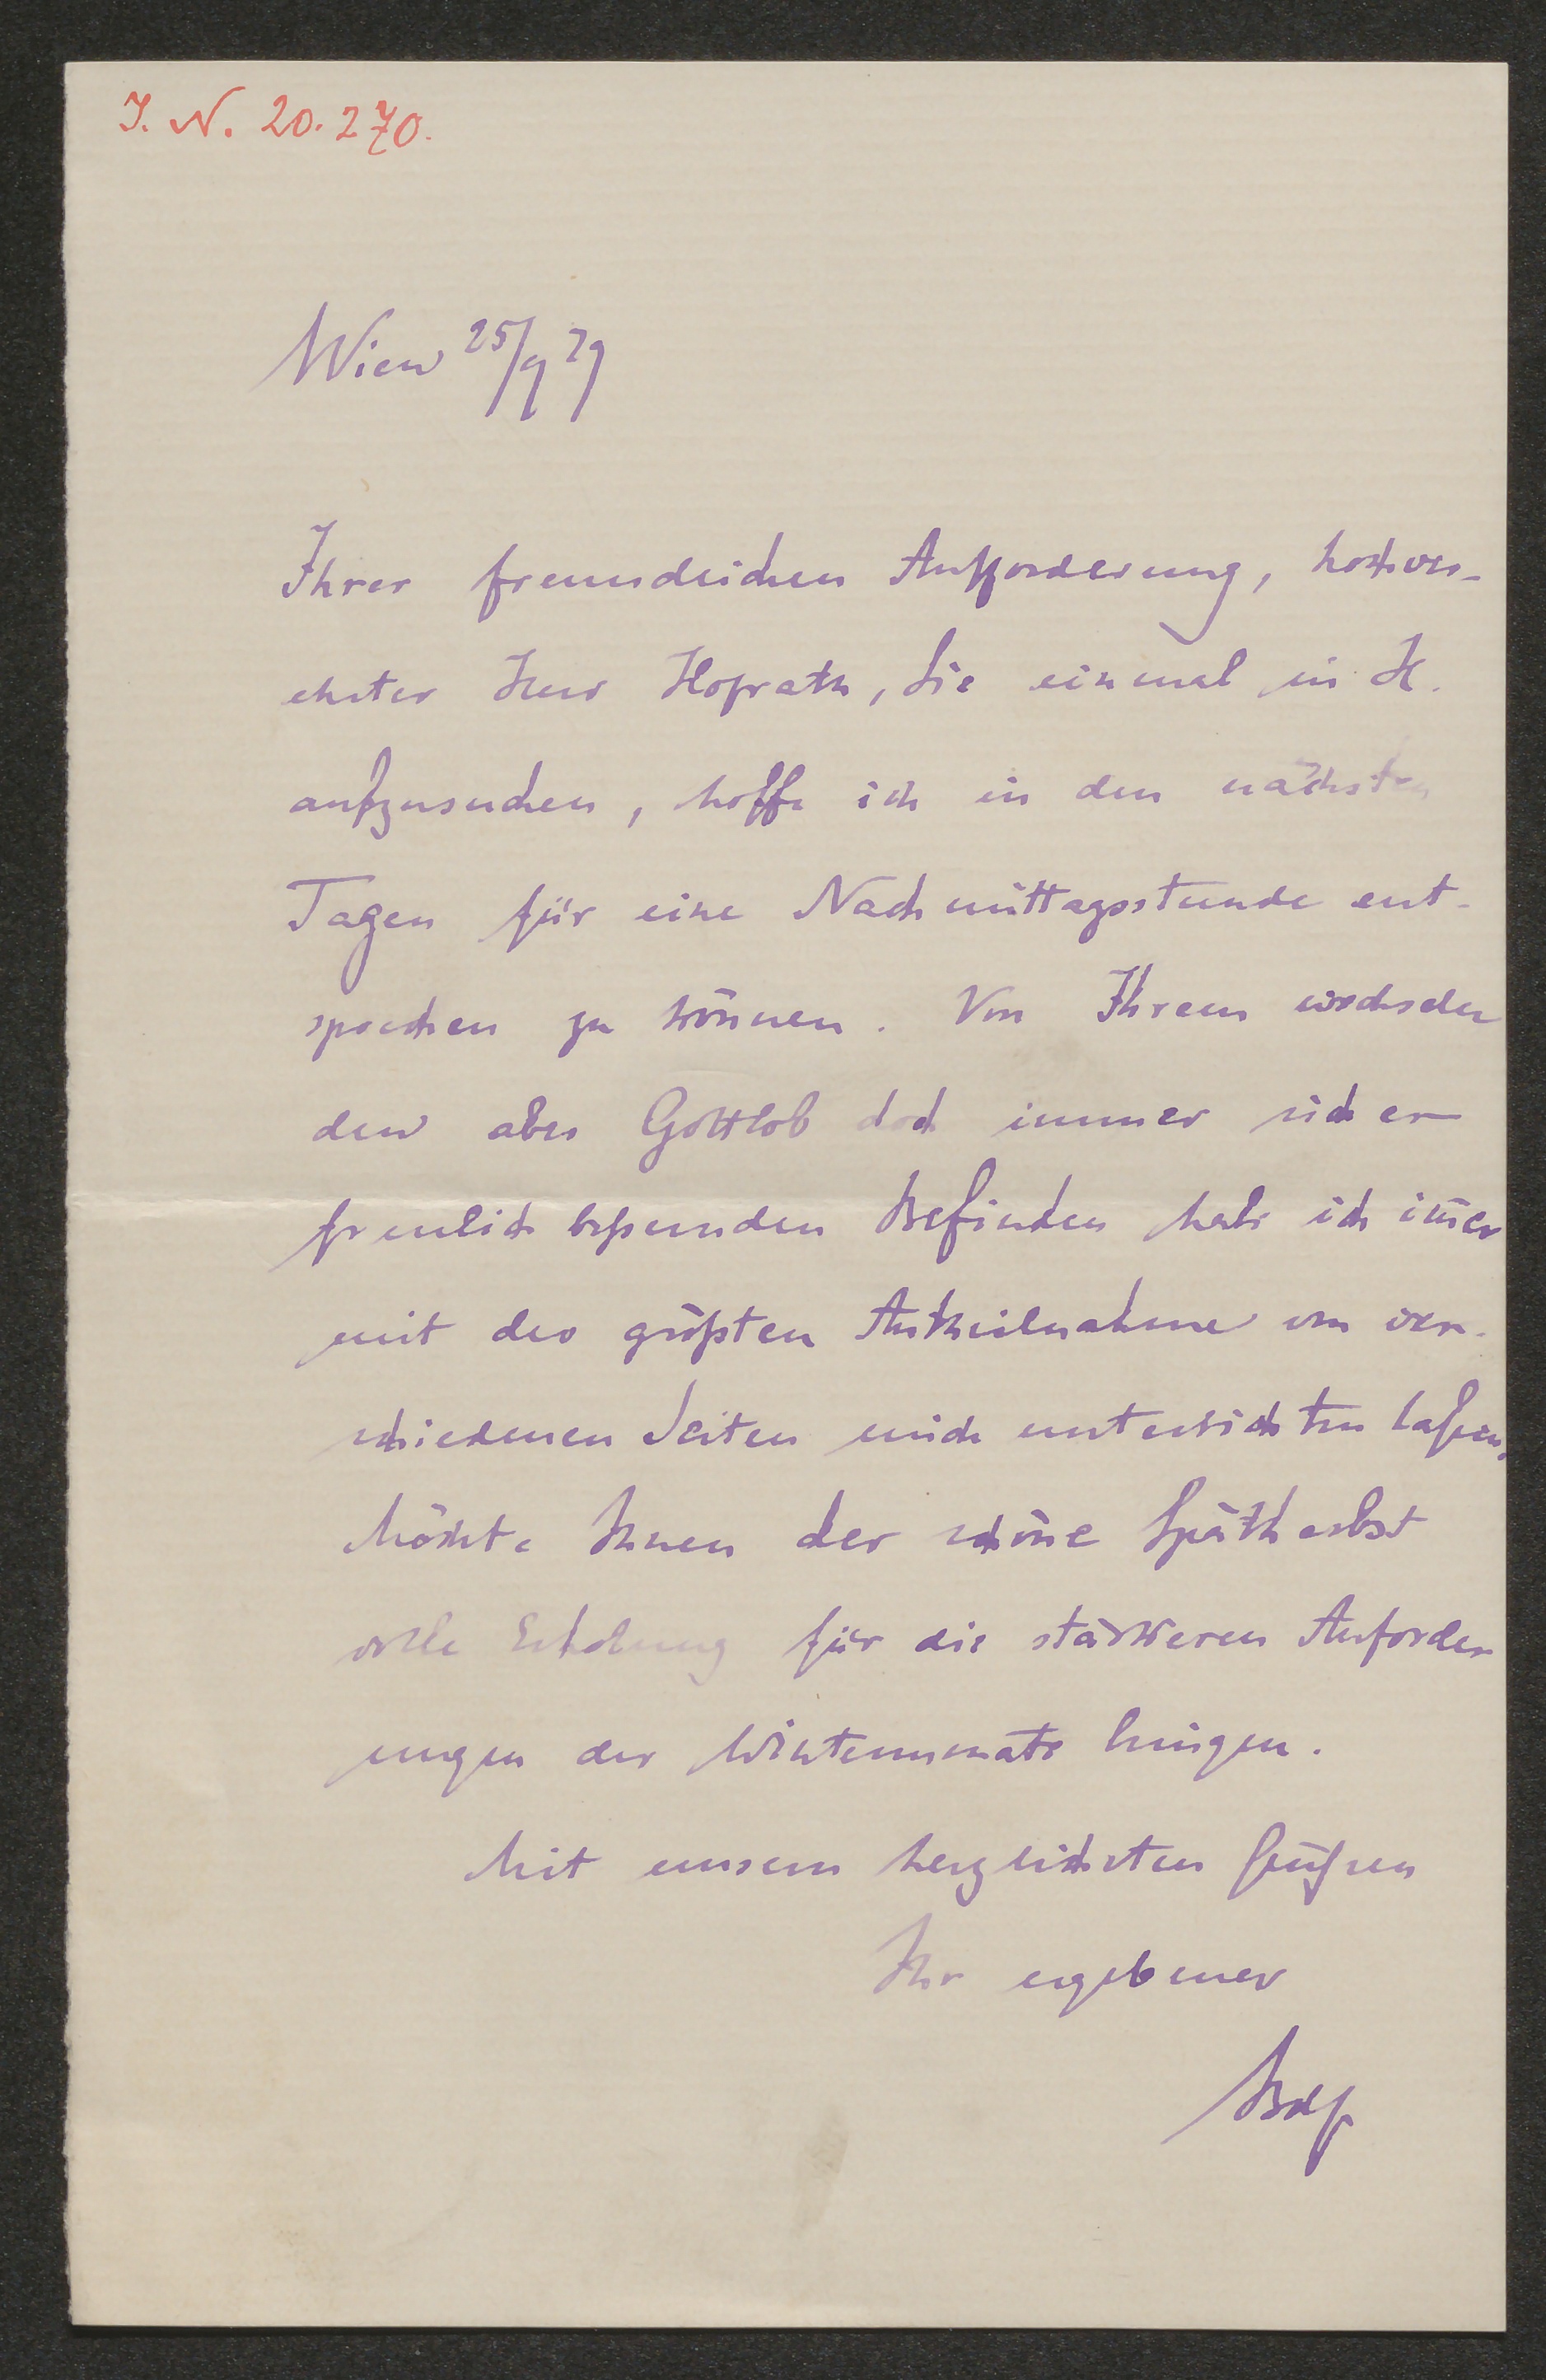 I. N. 20.270.
Wien 25/9 79
Ihrer freundlichen Aufforderung, hochver-
ehrter Herr Hofrath, Sie einmal in H.
aufzusuchen, hoffe ich in den nächsten
Tagen für eine Nachmittagsstunde ent-
sprechen zu können. Von Ihrem wechseln
den aber Gottlob doch immer sich er
freulich beßernden Befinden habe ich im̅er
mit der größten Antheilnahme von ver-
schiedenen Seiten mich unterrichten laßen,
Möchte Ihnen der schöne Spätherbst
volle Erholung für die stärkeren Anforder
ungen der Wintermonate bringen.
Mit unsern herzlichsten Grüßen
Ihr ergebener